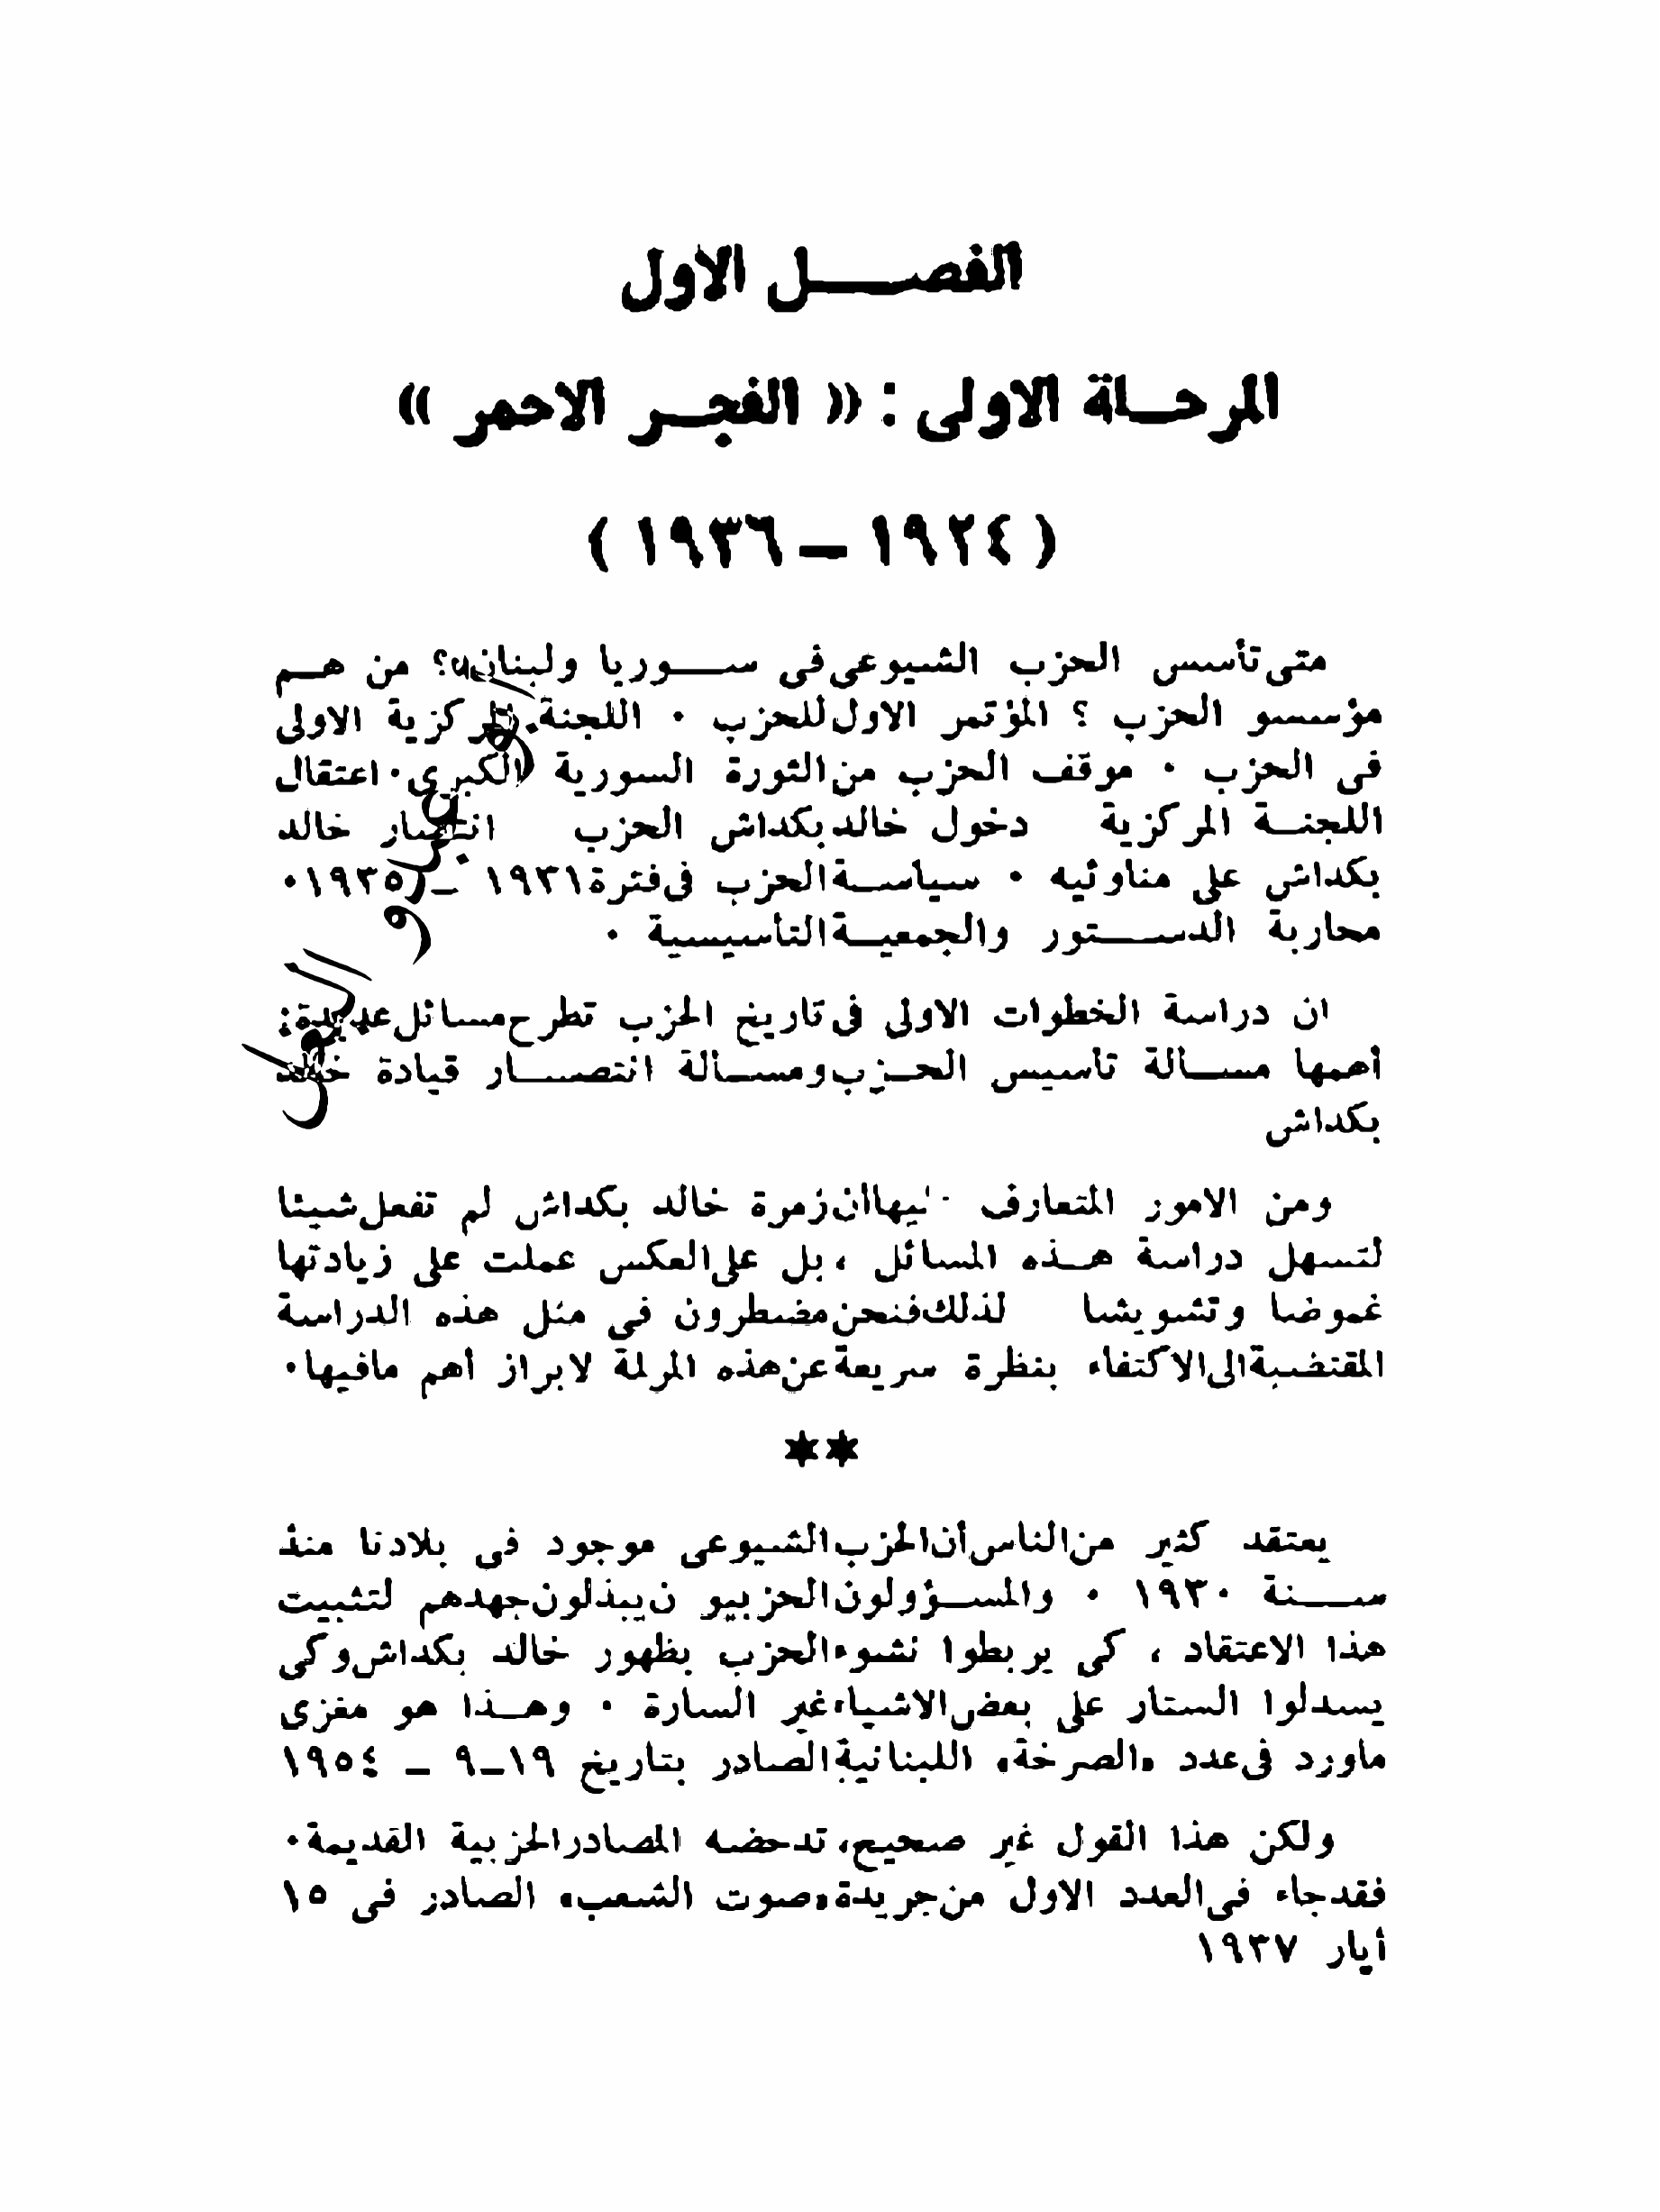 الفصل الاول
المرحلة الاولى : « الفجر الاحمر »
( ١٩٢٤ – ١٩٣٦ )
متى تأسس الحزب الشيوعى فى سوريا ولبنان؟ من هم
مؤسسو الحزب ؟ المؤتمر الاول للحزب ٠ اللجنة المركزية الاولى
فى الحزب ٠ موقف الحزب من الثورة السورية الكبرى ٠ اعتقال
اللجنة المركزية دخول خالد بكداش الحزب انتصار خالد
بكداش على مناوئيه ٠ سياسة الحزب فى فترة ١٩٣١ – ١٩٣٥ ٠
محاربة الدستور والجمعية التأسيسية ٠
ان دراسة الخطوات الاولى فى تاريخ الحزب تطرح مسائل عديدة :
أهمها مسالة تاسيس الحزب ومسالة انتصار قيادة خالد
بكداش
ومن الامور المتعارف ان زمرة خالد بكداش لم تفعل شيئا
لتسهل دراسة هذه المسائل ، بل على العكس عملت على زيادتها
غموضا وتشويشا لذلك فنحن مضطرون في مثل هذه الدراسة
المقتضبة الى الاكتفاء بنظرة سريعة عن هذه المرلة لابراز أهم مافيها ٠
**
يعتقد كثير من الناس أن الحزب الشيوعى موجود فى بلادنا منذ
سنة ١٩٣٠ ٠ والمسؤولون الحزبيو ن يبذلون جهدهم لتثبيت
هذا الاعتقاد ، كى يربطوا نشوء الحزب بظهور خالد بكداش وكى
يسدلوا الستار على بعض الاشياء غير السارة ٠ وهذا هو مغزى
ماورد فى عدد «الصرخة» اللبنانية الصادر بتاريخ ١٩–٩ – ١٩٥٤
ولكن هذا القول غير صحيح، تدحضه المصادر الحزبية القديمة ٠
فقد جاء فى العدد الاول من جريدة «صوت الشعب» الصادر فى ١٥
أيار ١٩٣٧